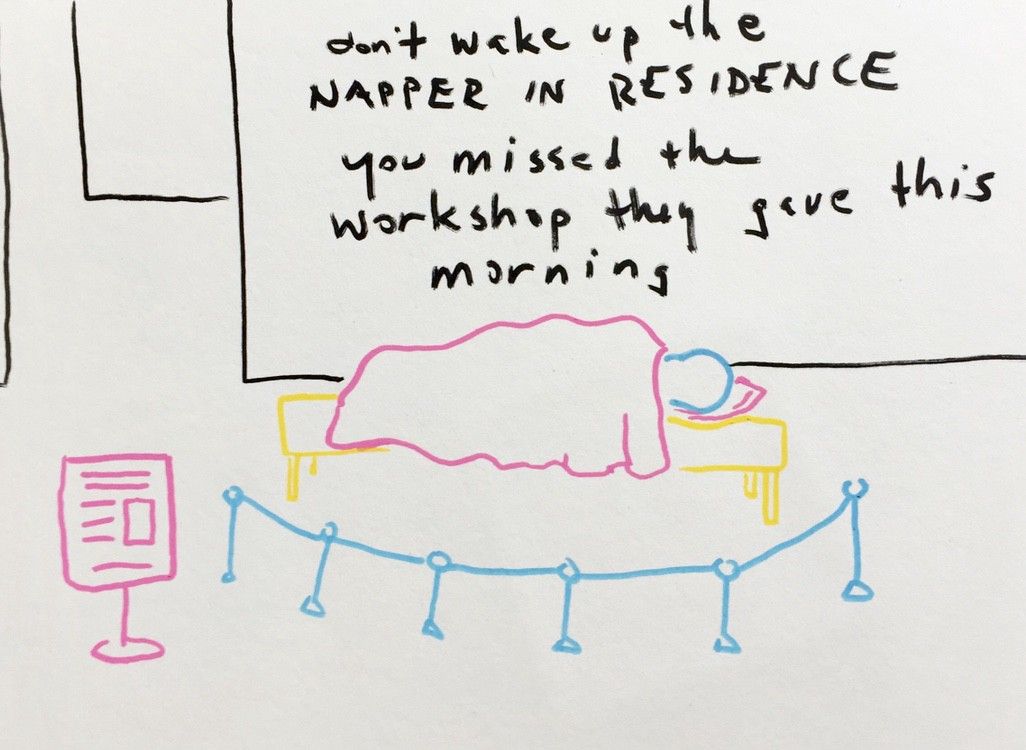 don't wake up the
NAPPER IN RESIDENCE
you missed the
workshop they gave this
morning